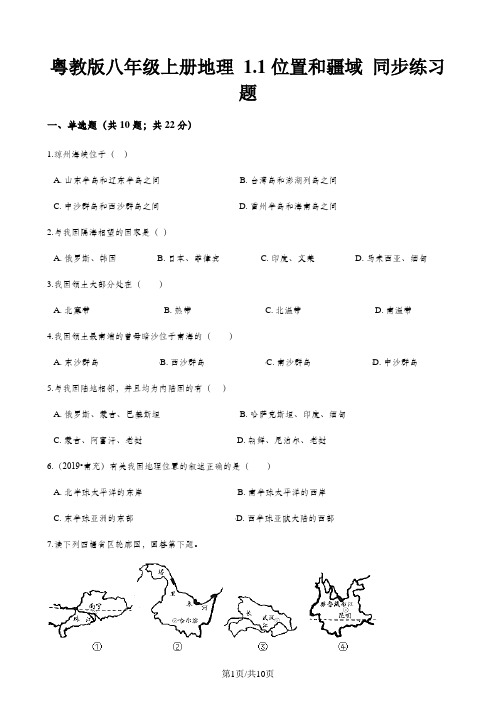 粤教版八年级上册地理 1.1位置和疆域 同步练习
题
一、单选题（共10题；共22分）
1.琼州海峡位于（ ）
A. 山东半岛和辽东半岛之间 B. 台湾岛和澎湖列岛之间
C. 中沙群岛和西沙群岛之间 D. 雷州半岛和海南岛之间
2.与我国隔海相望的国家是（ ）
A. 俄罗斯、韩国 B. 日本、菲律宾 C. 印度、文莱 D. 马来西亚、缅甸
3.我国领土大部分处在（ ）
A. 北寒带 B. 热带 C. 北温带 D. 南温带
4.我国领土最南端的曾母暗沙位于南海的（ ）
A. 东沙群岛 B. 西沙群岛 C. 南沙群岛 D. 中沙群岛
5.与我国陆地相邻，并且均为内陆国的有（ ）
A. 俄罗斯、蒙古、巴基斯坦 B. 哈萨克斯坦、印度、缅甸
C. 蒙古、阿富汗、老挝 D. 朝鲜、尼泊尔、老挝
6.（2019•南充）有关我国地理位置的叙述正确的是（ ）
A. 北半球太平洋的东岸 B. 南半球太平洋的西岸
C. 东半球亚洲的东部 D. 西半球亚欧大陆的西部
7.读下列四幅省区轮廓图，回答第下题。
南宁 珠 江 里 木 河 哈尔滨 长 江 武汉 雅鲁藏布江 昆明
① ② ③ ④
第1页/共10页